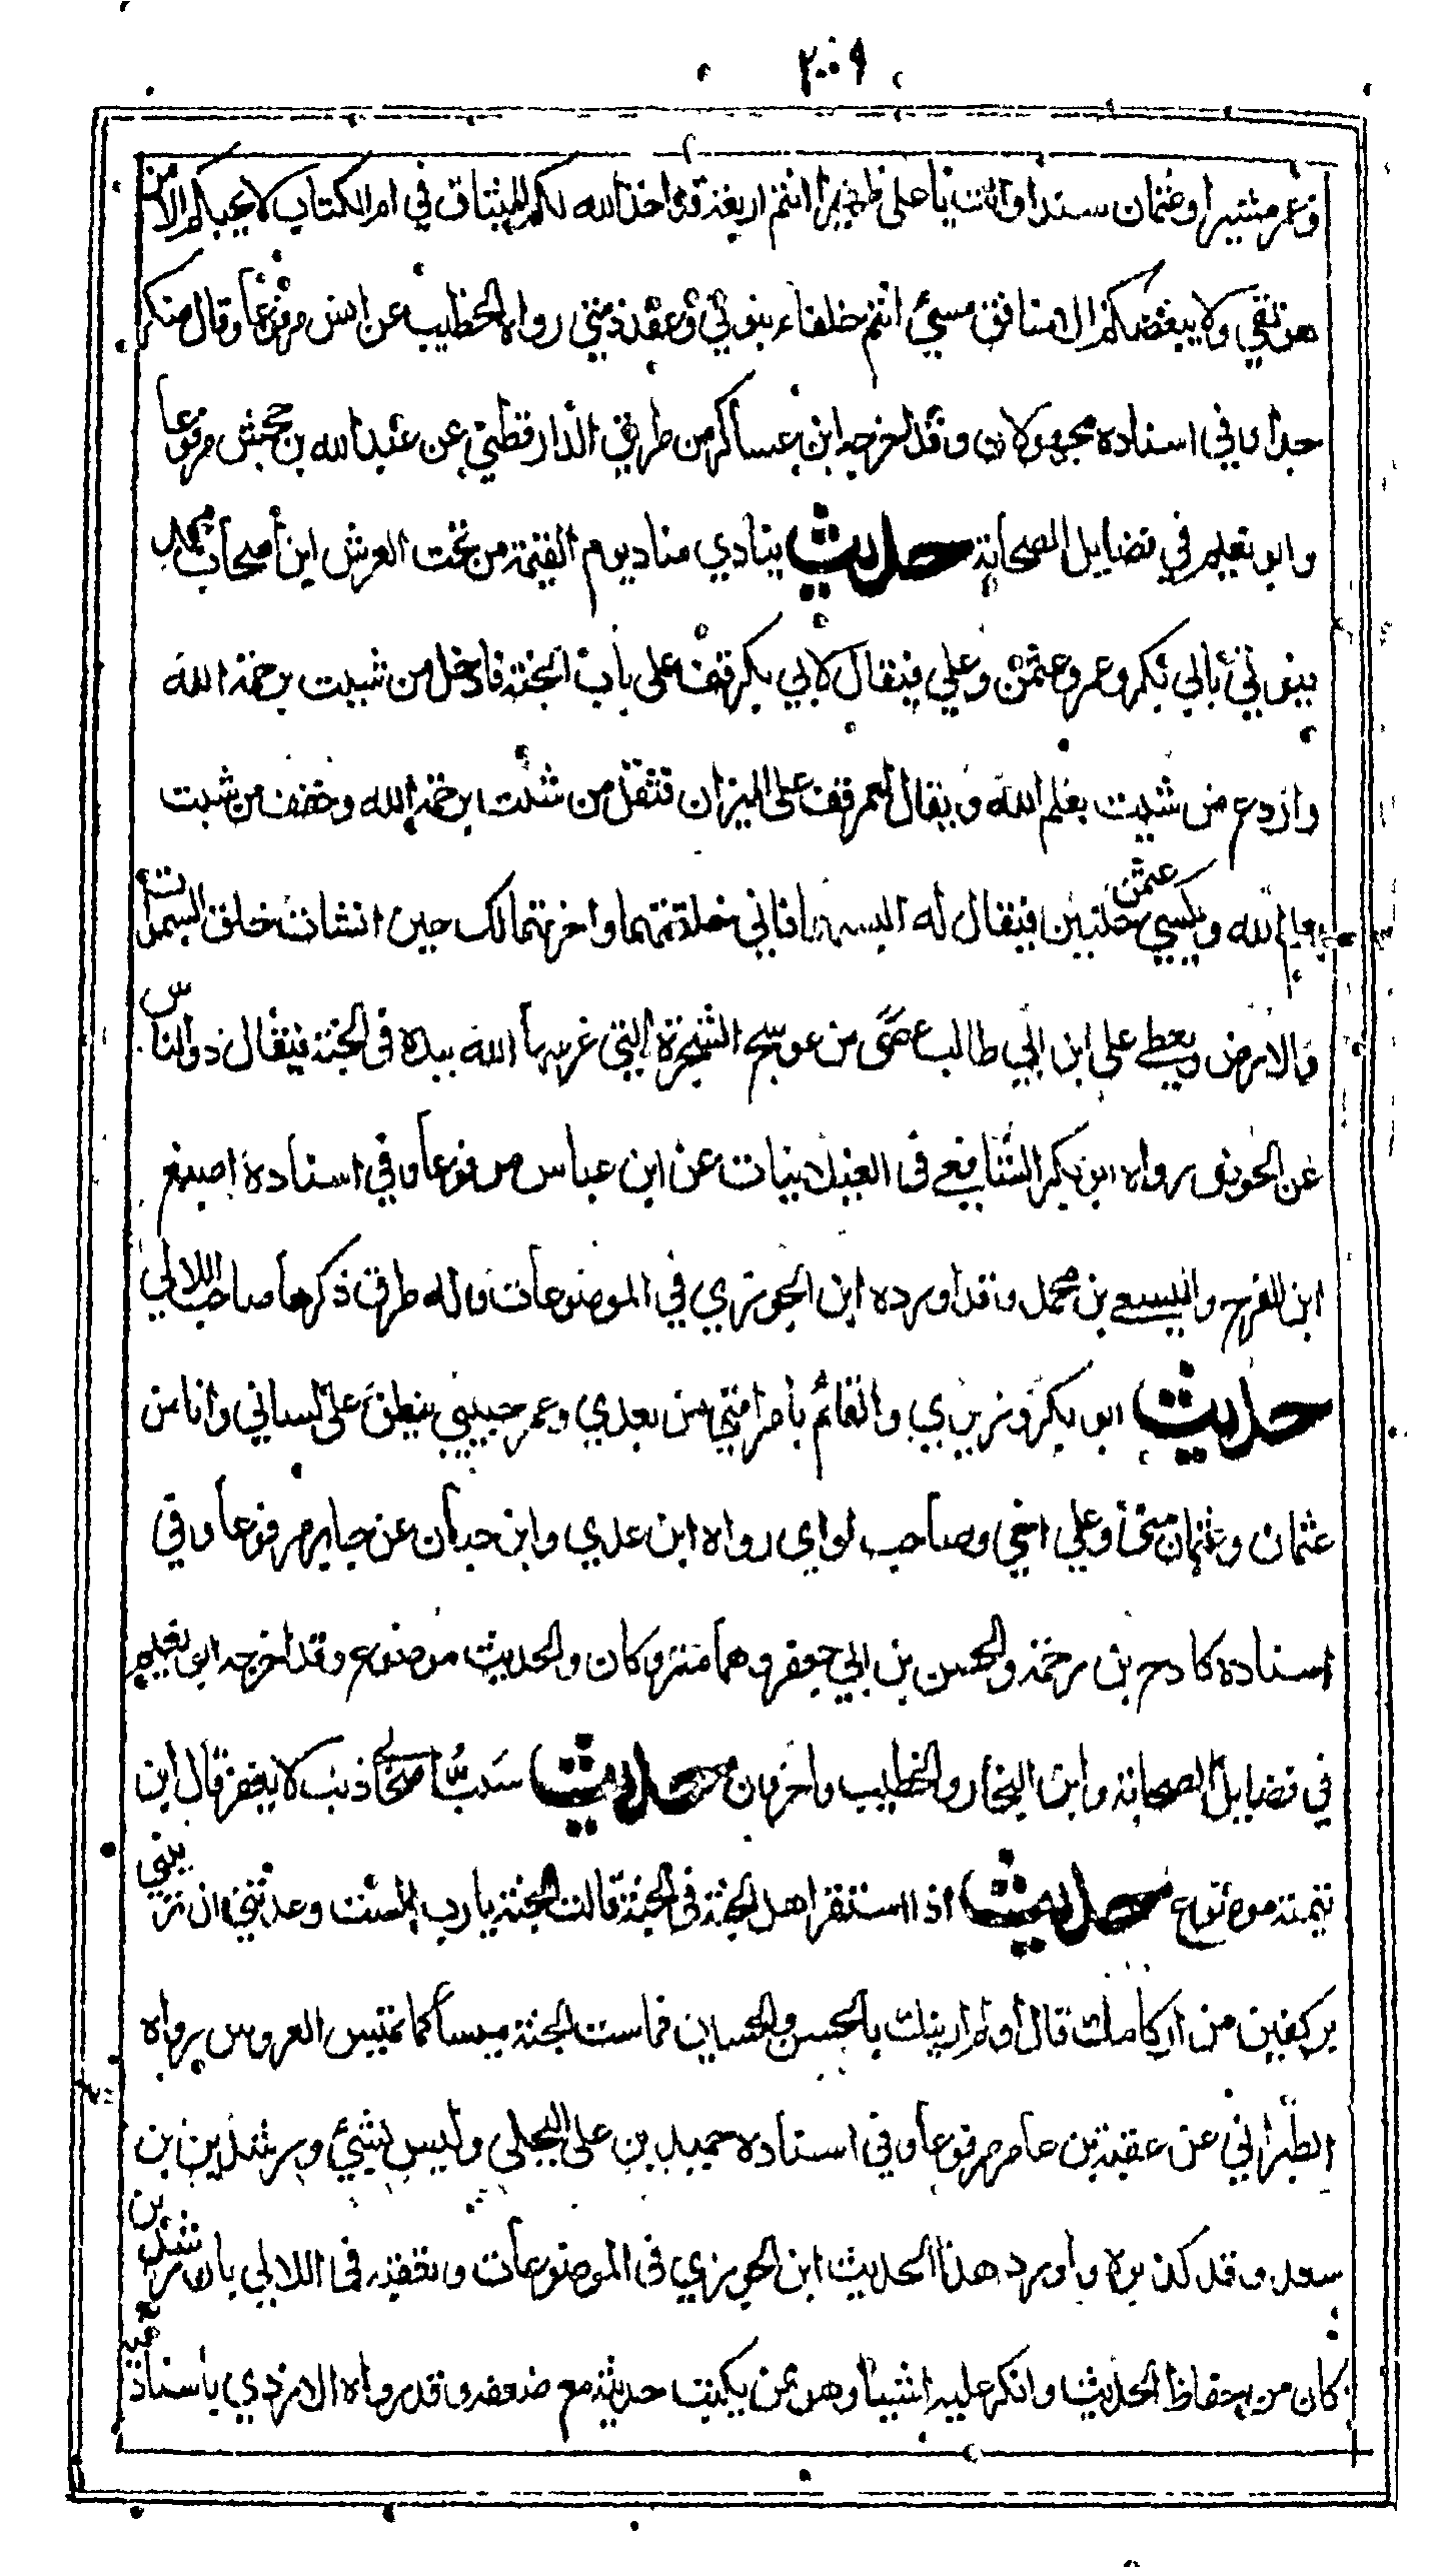 ٢٠٠٩
وعمر مشيرا وعثمان سندا وانت يا على ظهيرا انتم اربعة قد اخذ الله لكم الميثاق في ام الكتاب لا يحبكم الا من
هو تقي ولا يبغضكم الا منافق مسئ انتم خلفاء بنوتي وعقد ذمتي رواه الخطيب عن انس مرفوعا وقال منكر
جدا وفي اسناده مجهولان وقد اخرجه ابن عساكر من طريق الدارقطني عن عبد الله بن جحش مرفوعا
وابو نعيم في فضايل الصحابة حديث ينادي مناد يوم القيمة من تحت العرش اين اصحاب محمد
فيوتي بابي بكر وعمر وعثمن وعلي فيقال لابي بكر قف على باب الجنة فادخل من شيت برحمة الله
وازدع من شيت بعلم الله ويقال لعمر قف على الميزان فثقل من شئت برحمة الله وخفف من شيت
بعلم الله ويكسي عثمن حلتين فيقال له البسهما فاني خلقتهما واخرتهما لك حين انشات خلق السموات
والارض ويعطى على ابن ابي طالب عصى من عوسج الشجرة التي غرسها الله بيده في الجنة فيقال ذد الناس
عن الحوض رواه ابو بكر الشافعي في الغيلانيات عن ابن عباس مرفوعا وفي اسناده اصبغ
ابن الفرج واليسع بن محمد وقد اورده ابن الجوزي في الموضوعات وله طرق ذكرها صاحب اللالي
حديث ابو بكر وزيري والقائم بامر امتي من بعدي وعمر حبيبي ينطق على لساني وانا من
عثمان وعثمان مني وعلي اخي وصاحب لواي رواه ابن عدي وابن حبان عن جابر مرفوعا وفي
اسناده كادح بن رحمة والحسن بن ابي جعفر وهما متروكان والحديث موضوع وقد اخرجه ابو نعيم
في فضايل الصحابة وابن النجار والخطيب واخرون حديث سب اصحابي ذنب لا يغفر قال ابن
تيمية موضوع حديث اذا استقر اهل الجنة في الجنة قالت الجنة يا رب اليست وعدتني ان تزينني
بركنين من اركانك قال اولم ازينك بالحسن والحسين فماست الجنة ميسا كما تميس العروس رواه
الطبراني عن عقبة بن عامر مرفوعا وفي اسناده حميد بن على البجلي وليس بشئ ورشدين بن
سعد وقد كذبوه واورد هذا الحديث ابن الجوزي في الموضوعات وتعقبه في اللالي بان رشدين
كان من حفاظ الحديث وانكر عليه اشيا وهو ممن يكتب حديثه مع ضعفه وقد رواه الازدي باسناد فيه